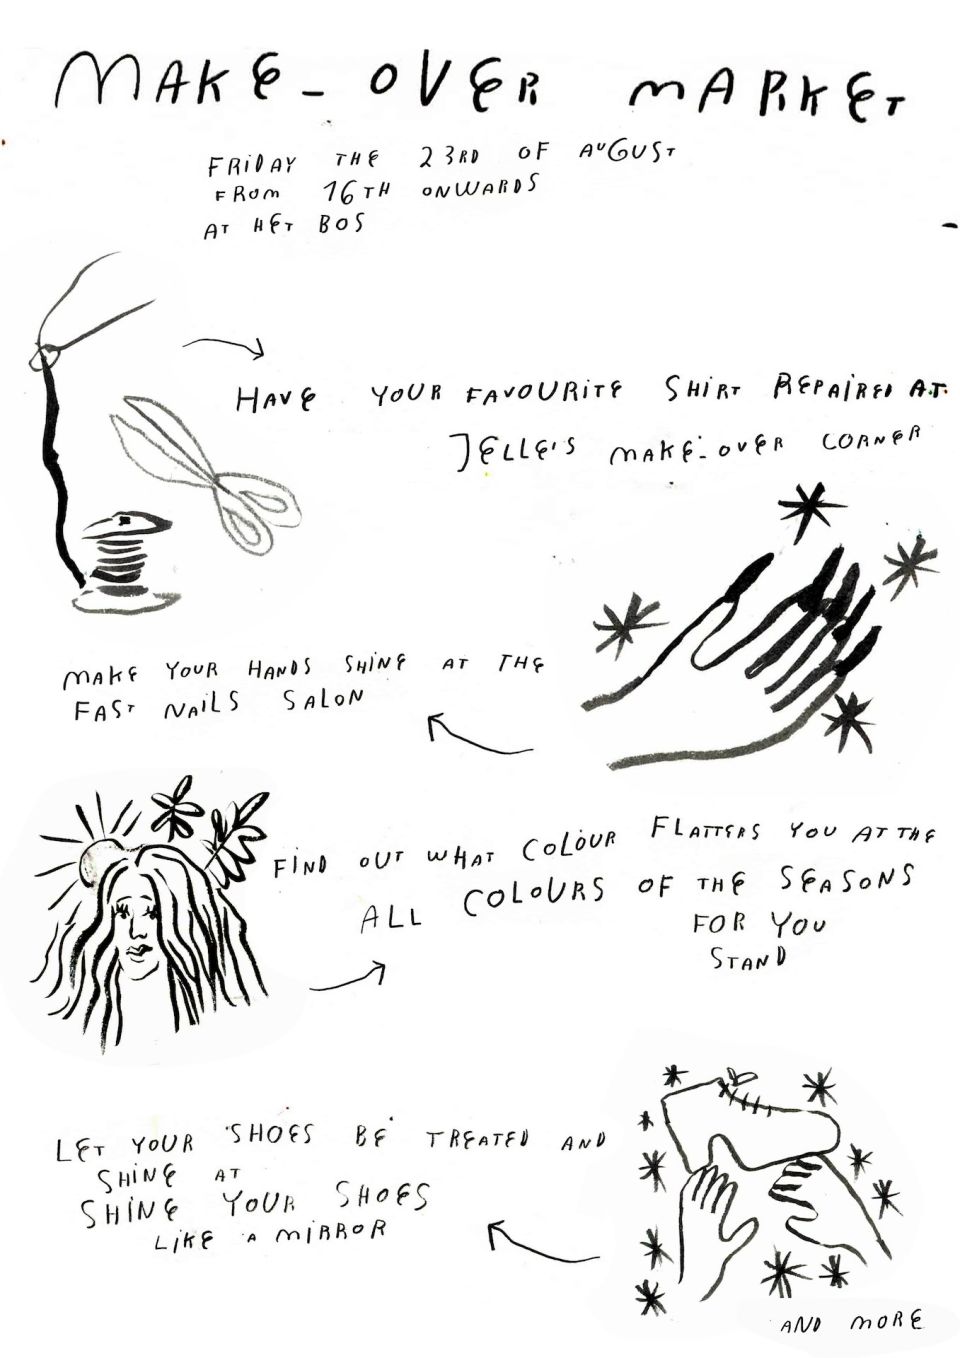 MAKE-OVER MARKET
FRiDAY THE 23RD OF AUGUST
FROM 16TH ONWARDS
AT HET BOS
HAVE YOUR FAVOURiTE SHiRT REPAiRED AT
JELLE'S MAKE-OVER CORNER
MAKE YOUR HANDS SHiNE AT THE
FAST NAiLS SALON
FiND OUT WHAT COLOUR FLATTERS YOU AT THE
ALL COLOURS OF THE SEASONS
FOR YOU
STAND
LET YOUR SHOES BE TREATED AND
SHiNE AT
SHiNE YOUR SHOES
LiKE A MiRROR
AND MORE